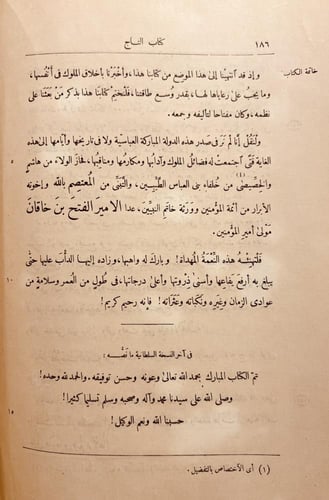 كتاب التاج ١٨٦
خاتمة الكتاب.
وإذ قد آنتهينا إلى هذا الموضع من كتابنا هذا، وأخبرنا بأخلاق الملوك فى أنفسها،
وما يجب على رعاياها لها، بقدر وُسع طاقتنا، فلنختم كتابنا هذا بذكر من بعثنا على
نظمه، وكان مفتاحا لتأليفه و جمعه.
ولنقُل إنا لم نر فى صدر هذه الدولة المباركة العباسية ولا فى تاريخها وأيامها إلى هذه
٥
الغاية فتًى آجتمعت له فضائلُ الملوك وآدابُها ومكارمُها ومناقبُها، فحاز الولاء من هاشم
والخِصِّيصَى(١) من خلفاء بنى العباس الطيِّبين، والتبنِّى من المُعتصم بالله وإخوته
الأبرار من أئمة المؤمنين وورثة خاتم النبيّين، عدا الأمير الفتح بن خاقان
مَوْلىٰ أمير المؤمنين.
فَلْتَهْنِئْهُ هذه النّعْمةُ المهداة! وبارك له واهبها، وزاده إليها الدأب عليها حتَّى
يبلغ به أرفع يَفَاعها وأسنىٰ ذِرْوتها وأعلىٰ درجاتها، فى طُولٍ من العُمر وسلامةٍ من
١٠
عوادى الزمان وغِيَره ونَكَباته وعَثَراته! فإنه رحيم كريم!
فى آخر النسخة السلطانية ما نَصُّه :
تم الكتاب المبارك بحمد الله تعالىٰ وعونه وحسن توفيقه. والحمد لله وحده!
وصلى الله على سيدنا محمد وآله وصحبه وسلم تسليما كثيرا!
حسبنا الله ونعم الوكيل!
(١) أى الاختصاص بالتفضيل.